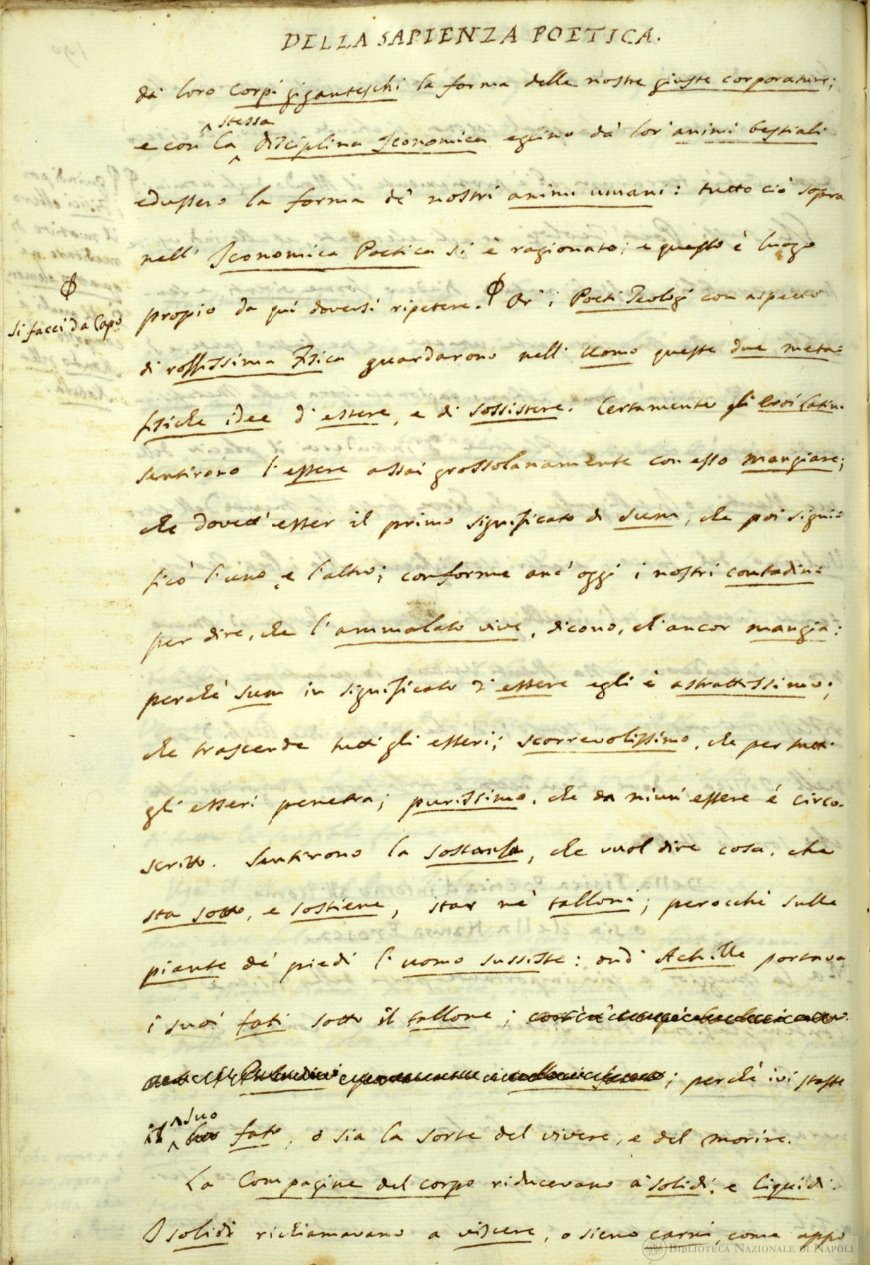 DELLA SAPIENZA POETICA.
da' loro corpi giganteschi la forma delle nostre giuste corporature;
stessa
e con la disciplina Iconomica eglino da' lor' animi bestiali
edussero la forma de' nostri animi umani: tutto ciò sopra
nell' Iconomica Poetica si è ragionato; e questo è luogo
ϕ
Si facci da Capo
propio da qui doversi ripetere. ϕ Or' i Poeti Teologi con aspetto
di rossissima Fisica guardarono nell' Uomo queste due meta-
fisiche idee d' essere, e di sossistere. Certamente gli Eroi Latini
sentirono l' essere assai grossolanamente con esso mangiare;
che dovett' esser il primo significato di sum, che poi signi-
ficò l' uno, e l' altro; conforme anc' oggi i nostri contadini
per dire, che l' ammalato vive, dicono, ch' ancor mangia:
perchè sum in significato d' essere egli è astrattissimo;
che trascende tutti gli esseri; scorrevolissimo, che per tutti
gli esseri penetra; purissimo, che da niun essere è circo-
scritto. Sentirono la sostanza, che vuol dire cosa, che
sta sotto, e sostiene, star ne' talloni; perocchè sulle
piante de' piedi l' uomo sussiste: ond' Achille portava
i suoi fati sotto il tallone;
; perchè ivi stasse
suo
il fato, o sia la sorte del vivere, e del morire.
La Compagine del corpo riducevano a' solidi, e liquidi.
I solidi richiamavano a viscere, o sieno carni, come appo
BIBLIOTECA NAZIONALE DI NAPOLI